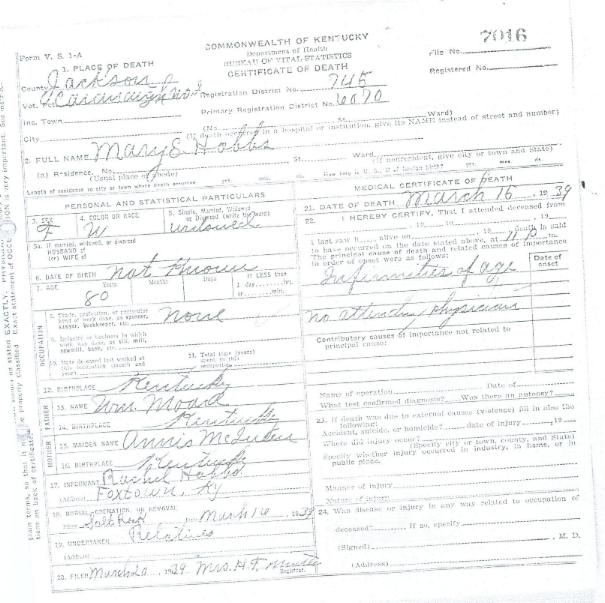 7016
COMMONWEALTH OF KENTUCKY
Form V. S. 1-A
Department of Health
BUREAU OF VITAL STATISTICS
CERTIFICATE OF DEATH
File No.
Registered No.
1. PLACE OF DEATH
County Jackson
Registration District No. 745
Vot. Pct.
Primary Registration District No. 6070
Inc. Town
City
(No. St. Ward)
(If death occurred in a hospital or institution, give its NAME instead of street and number)
2. FULL NAME Mary E Hobbs
(a) Residence. No. St. Ward.
(Usual place of abode) (If nonresident, give city or town and State)
Length of residence in city or town where death occurred yrs. mos. ds.
PERSONAL AND STATISTICAL PARTICULARS
3. SEX F
4. COLOR OR RACE W
5. Single, Married, Widowed or Divorced (write the word) widowed
5a. If married, widowed, or divorced
HUSBAND of
(or) WIFE of
6. DATE OF BIRTH not known
7. AGE Years Months Days If LESS than
80
1 day hrs.
or min.
OCCUPATION
8. Trade, profession, or particular kind of work done, as spinner, sawyer, bookkeeper, etc. none
9. Industry or business in which work was done, as silk mill, sawmill, bank, etc.
10. Date deceased last worked at this occupation (month and year)
11. Total time (years) spent in this occupation
12. BIRTHPLACE Kentucky
FATHER
13. NAME Wm.
14. BIRTHPLACE Kentucky
MOTHER
15. MAIDEN NAME Annis
16. BIRTHPLACE Kentucky
17. INFORMANT Rachel
(Address) Foxtown, Ky
18. BURIAL, CREMATION, OR REMOVAL
Place Date March 16, 1939
19. UNDERTAKER Relatives
(Address)
20. FILED March 20, 1939 Mrs. H. F.
Registrar.
MEDICAL CERTIFICATE OF DEATH
21. DATE OF DEATH March 15, 1939
22. I HEREBY CERTIFY, That I attended deceased from
, 19 , to , 19
I last saw h alive on , 19 , death is said
to have occurred on the date stated above, at 11 P. m.
The principal cause of death and related causes of importance in order of onset were as follows:
Date of onset
Infirmities of age
no attending physician
Contributory causes of importance not related to principal cause:
Name of operation Date of
What test confirmed diagnosis? Was there an autopsy?
23. If death was due to external causes (violence) fill in also the following:
Accident, suicide, or homicide? date of injury , 19
Where did injury occur?
(Specify city or town, county, and State)
Specify whether injury occurred in industry, in home, or in public place.
Manner of injury
Nature of injury
24. Was disease or injury in any way related to occupation of
deceased? If so, specify
(Signed) , M. D.
(Address)